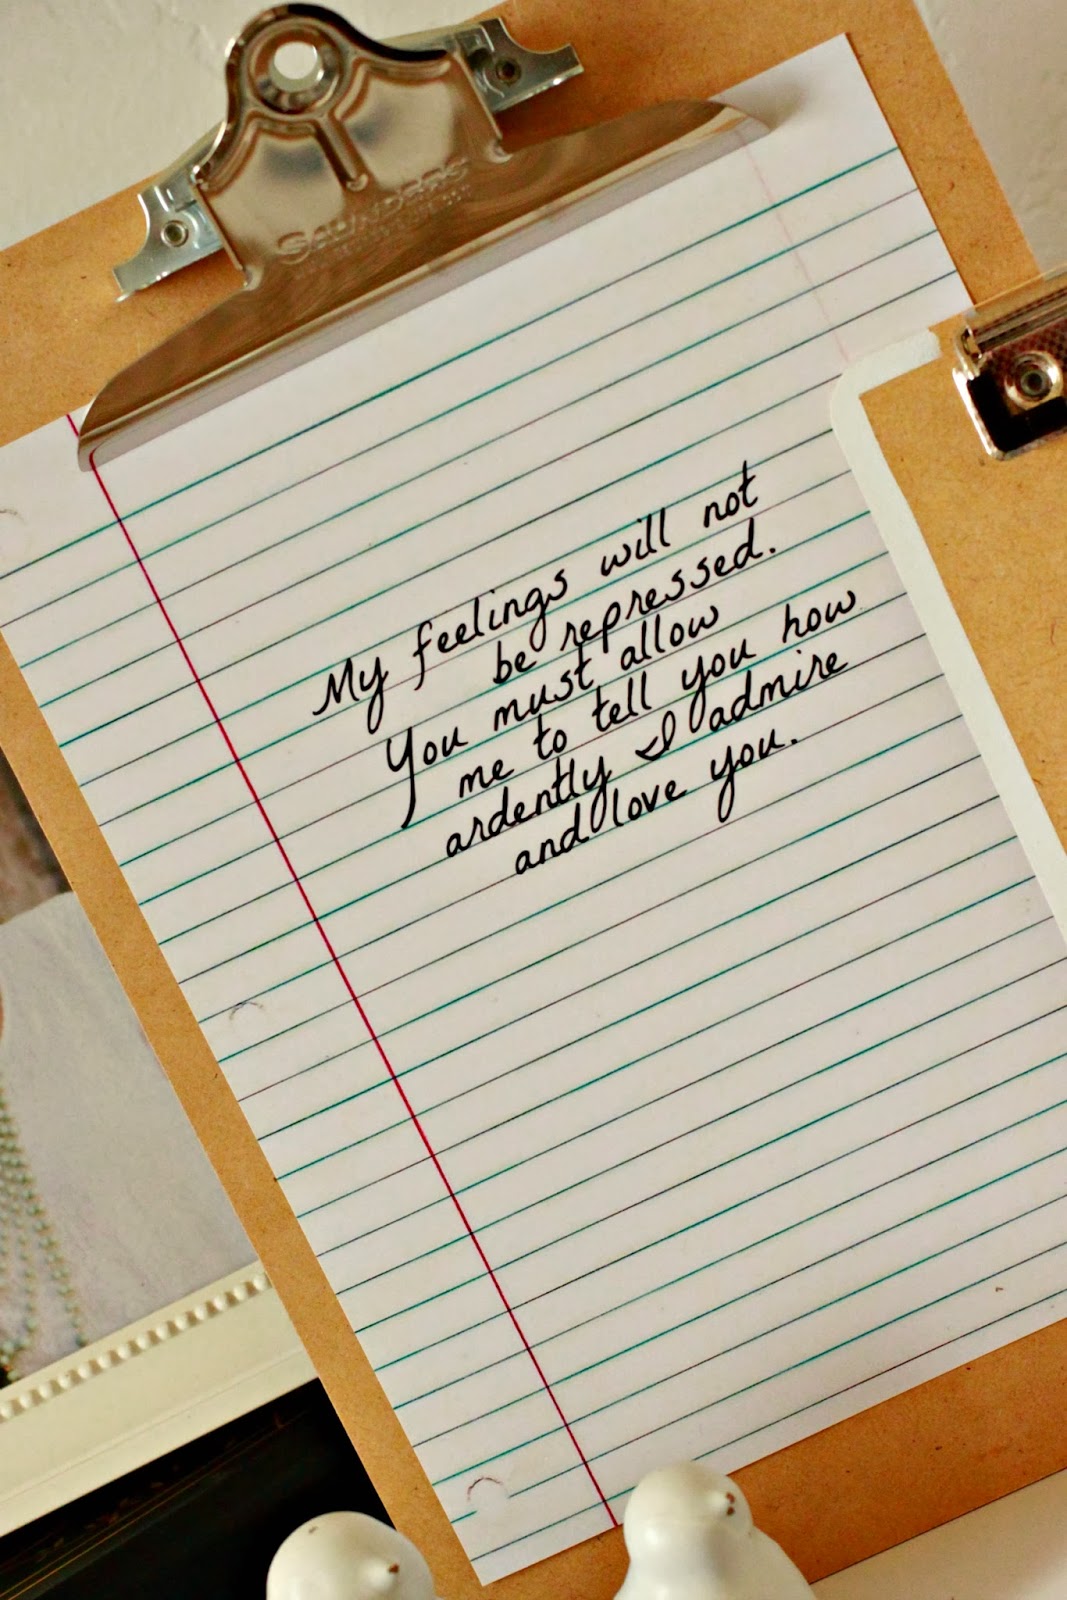 SAUNDERS
My feelings will not
be repressed.
You must allow
me to tell you how
ardently I admire
and love you.